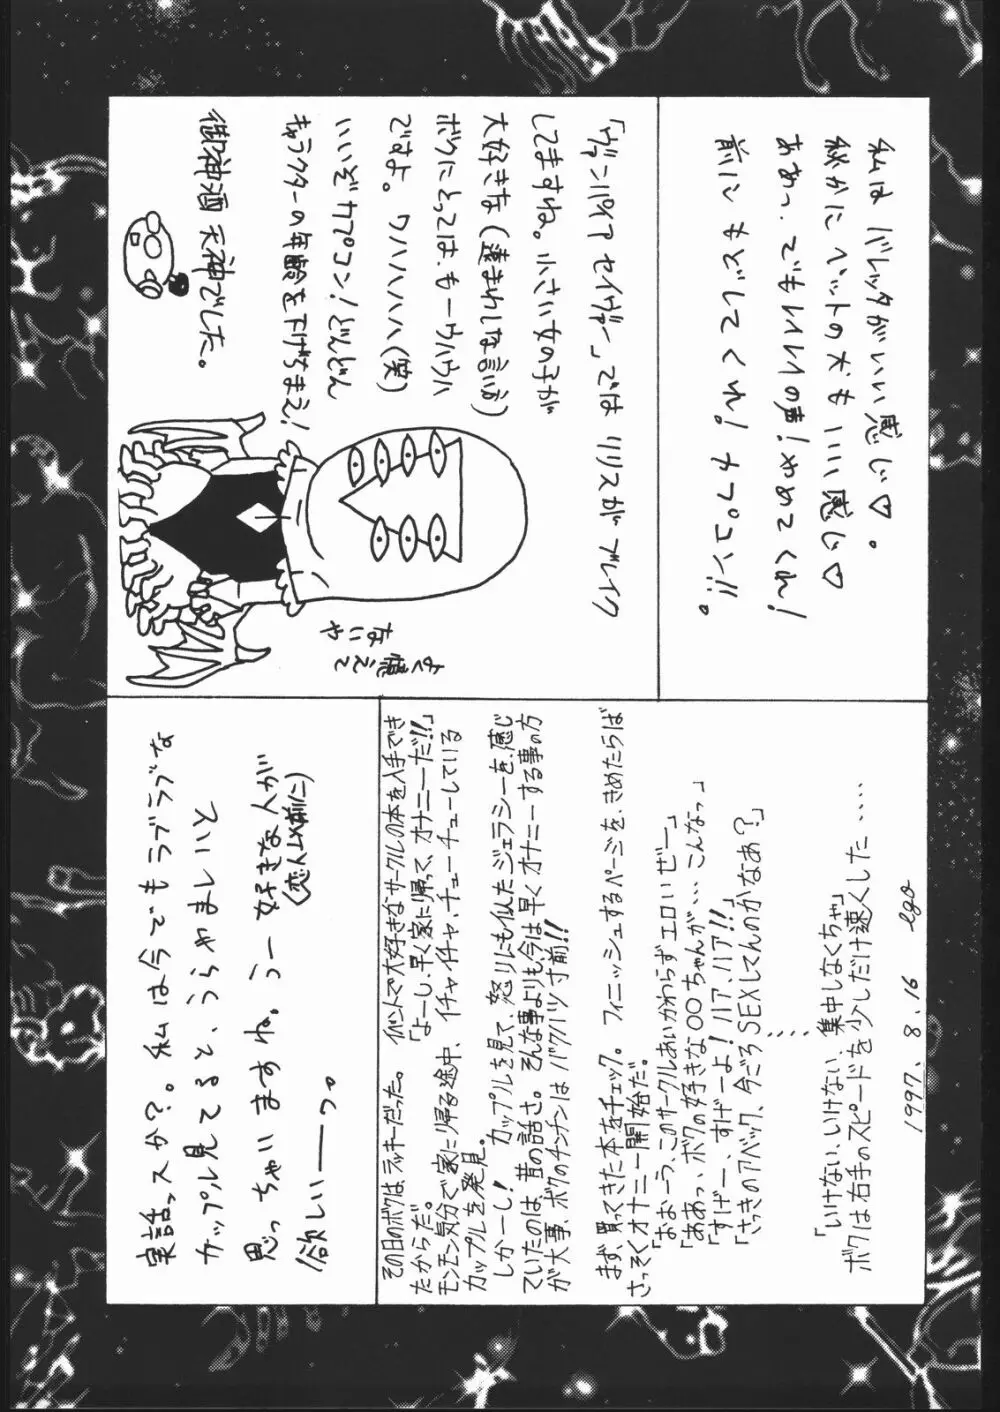 私は バレッタがいい感じ♡。
秘かに ペットの犬も いい感じ♡
「ヴァンパイア セイヴァー」では リリスが ブレイク
してますね。小さい女の子が
大好きな(遠まわしな言い方)
ボクにとっては、も一ウハウハ
ですよ。ワハハハハハ(笑)
いいぞカプコン!どんどん
キャラクターの年齢を下げちまえ!
御神酒 天神でした。
よく憶えて
ないや
その日のボクは、ラッキーだった。 イベントで大好きなサークルの本を入手でき
たからだ。「よーし、早く家に帰って、オナニーだ!!」
モンモン気分で家に帰る途中、イチャイチャ、チューチューしている
カップルを発見。
しかーし! カップルを見て、怒りにも似たジェラシーを、感じ
ていたのは、昔の話さ。そんな事よりも、今は早くオナニーする事の方
が大事、ボクのチンチンは バクハツ寸前!!
まず、買ってきた本をチェック。 フィニッシュするページを、きめたらば
さっそくオナニー開始だ。
「おぉーう、このサークルあいかわらずエロいぜー」
「ああっ、ボクの好きな〇〇ちゃんが、、、こんなっ」
「すげー、すげーよ!ハァ、ハァ!!」
「さっきのアベック、今ごろSEXしてんのかなぁ?」
「いけない、いけない、集中しなくちゃ」
ボクは右手のスピードを少しだけ速くした・・・・
1997.8.16 ego
実話っスか?。私は今でもラブラブな
カップル見てると、うらやましいいと
思っちゃいますね。うー 好きな人が
(恋人以前に)
欲しいーーっ。